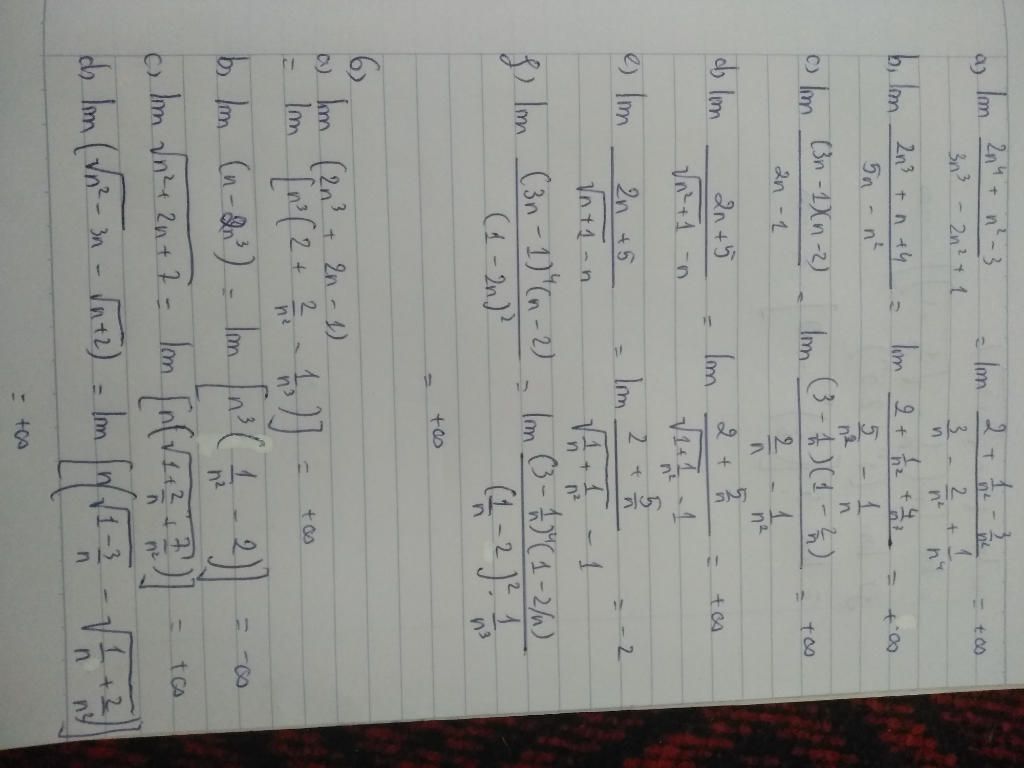 a) lim (2n⁴ + n² - 3)/(3n³ - 2n² + 1) = lim (2 + 1/n² - 3/n²)/(3/n - 2/n² + 1/n⁴) = +∞
b) lim (2n³ + n + 4)/(5n - n²) = lim (2 + 1/n² + 4/n³)/(5/n² - 1/n) = +∞
c) lim (3n - 1)(n - 2)/(2n - 1) = lim (3 - 1/n)(1 - 2/n)/(2/n - 1/n²) = +∞
d) lim (2n + 5)/(√(n² + 1) - n) = lim (2 + 5/n)/(√(1 + 1/n²) - 1) = +∞
e) lim (2n + 5)/(√(n + 1) - n) = lim (2 + 5/n)/(√(1/n + 1/n²) - 1) = -2
f) lim (3n - 1)⁴(n - 2)/(1 - 2n)² = lim (3 - 1/n)⁴(1 - 2/n)/((1/n - 2)² · 1/n³)
= +∞
6)
a) lim (2n³ + 2n - 1)
= lim [n³(2 + 2/n² - 1/n³)] = +∞
b) lim (n - 2n³) = lim [n³(1/n² - 2)] = -∞
c) lim √(n² + 2n + 7) = lim [n(√(1 + 2/n + 7/n²))] = +∞
d) lim (√(n² - 3n) - √(n + 2)) = lim [n(√(1 - 3/n) - √(1/n + 2/n²))]
= +∞